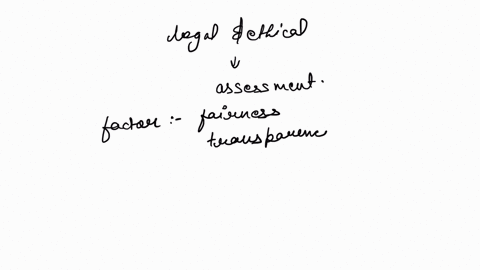 legal & ethical
↓
assessment.
factor :- fairness
transparenc